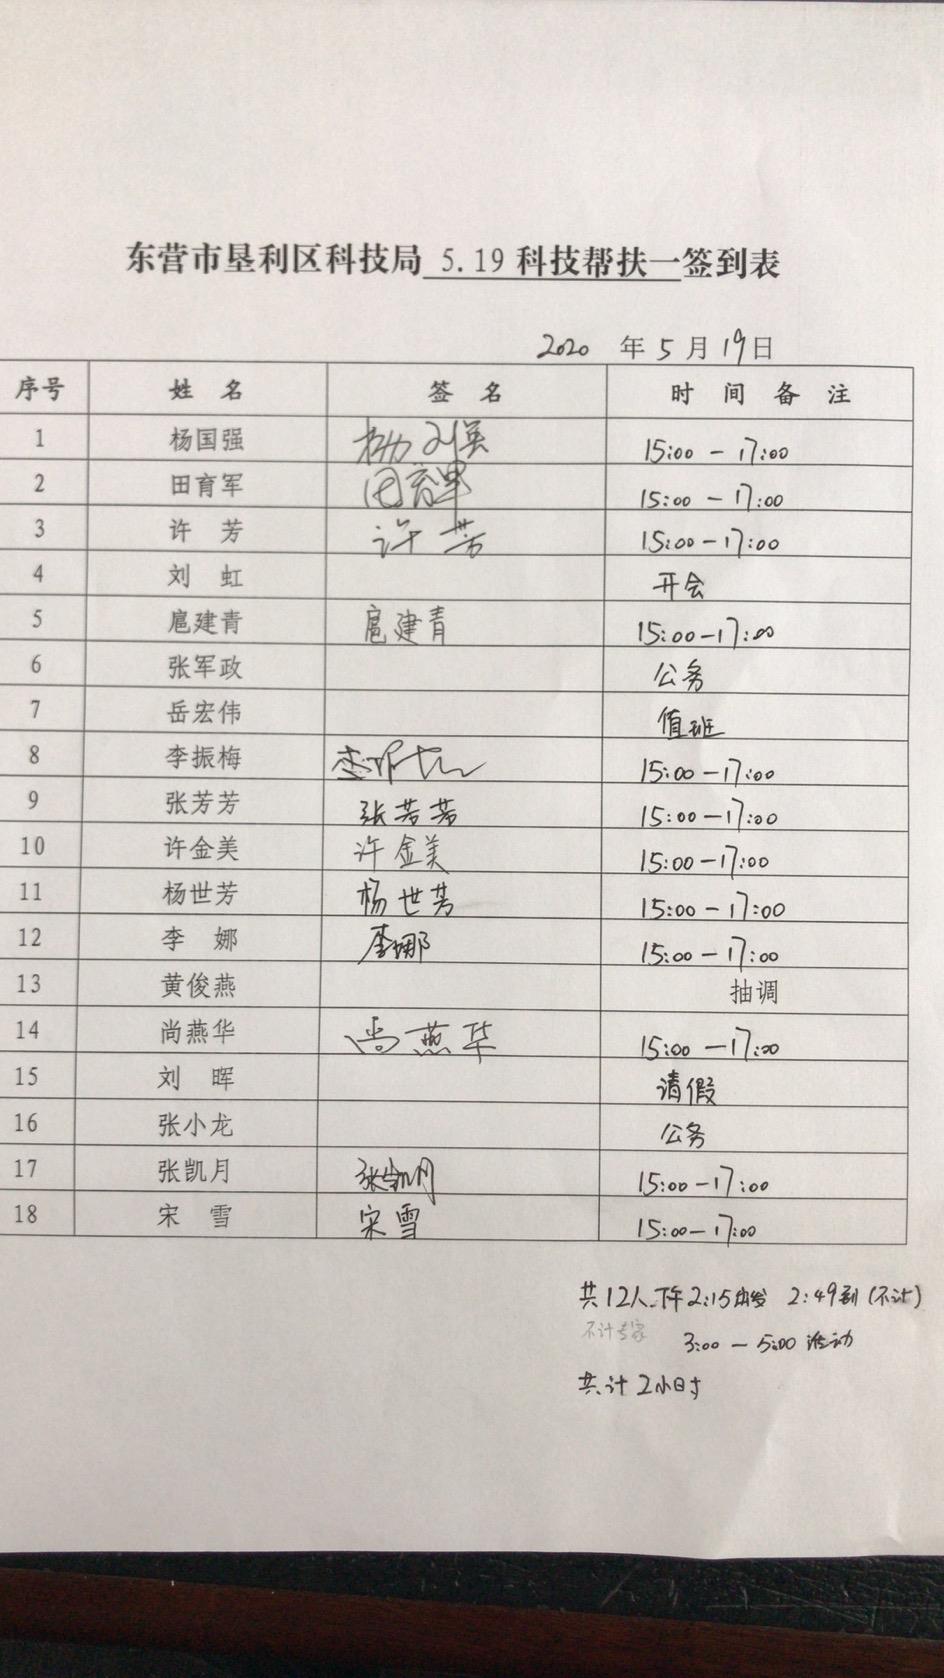 东营市垦利区科技局 5.19科技帮扶一签到表
2020 年 5 月 19 日
序号 姓 名 签 名 时 间 备 注
1 杨国强 杨国强 15:00 - 17:00
2 田育军 田育军 15:00 - 17:00
3 许 芳 许芳 15:00 - 17:00
4 刘 虹 开会
5 扈建青 扈建青 15:00 - 17:00
6 张军政 公务
7 岳宏伟 值班
8 李振梅 15:00 - 17:00
9 张芳芳 张芳芳 15:00 - 17:00
10 许金美 许金美 15:00 - 17:00
11 杨世芳 杨世芳 15:00 - 17:00
12 李 娜 李娜 15:00 - 17:00
13 黄俊燕 抽调
14 尚燕华 尚燕华 15:00 - 17:00
15 刘 晖 请假
16 张小龙 公务
17 张凯月 张凯月 15:00 - 17:00
18 宋 雪 宋雪 15:00 - 17:00
共12人.下午2:15出发 2:49到(不计)
不计专家 3:00 - 5:00 活动
共计2小时